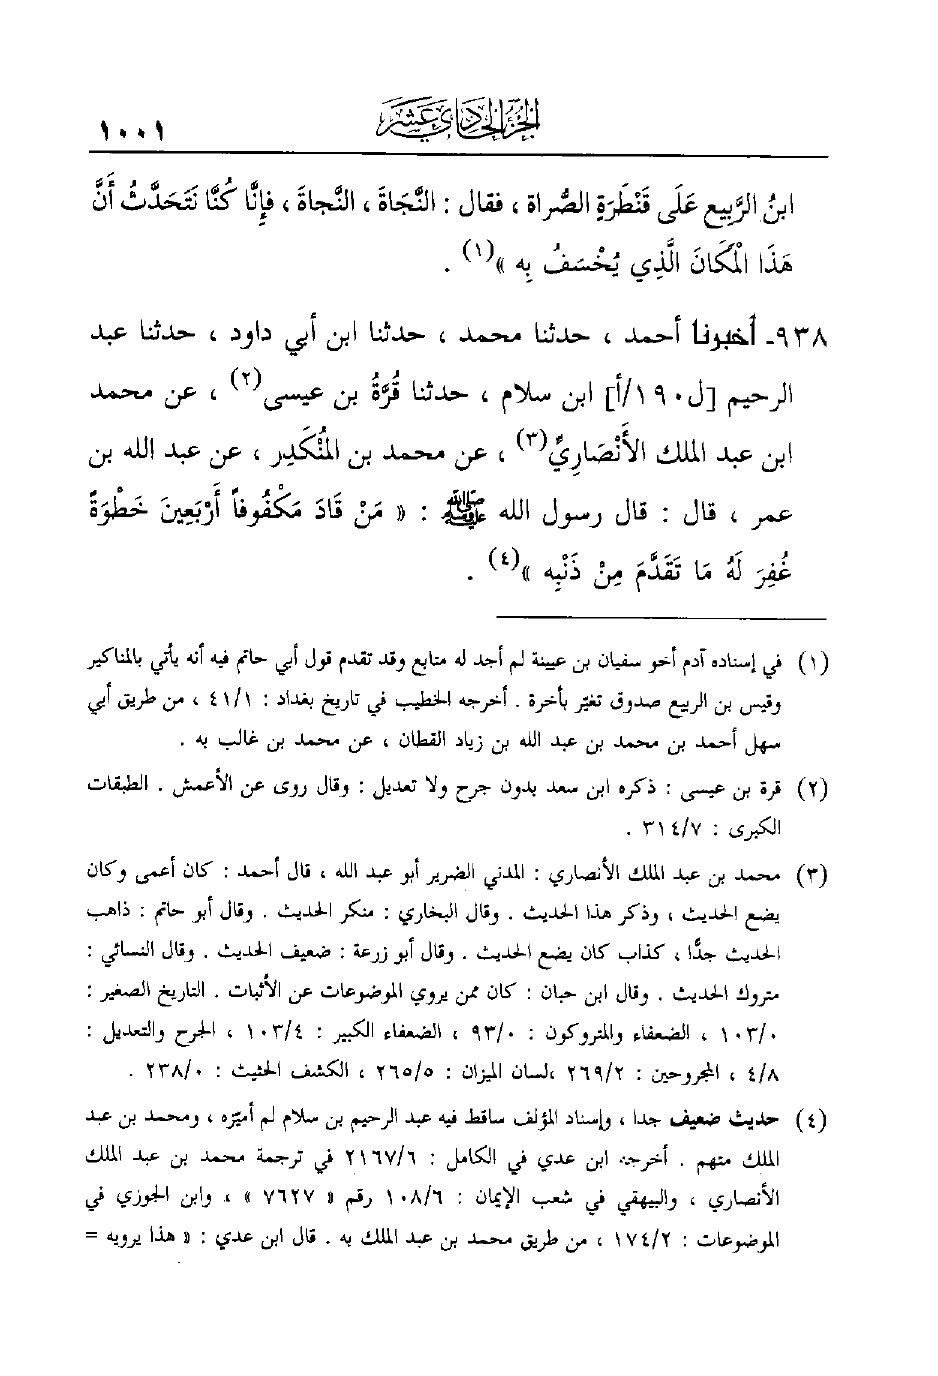 الجزء الحادي عشر
١٠٠١
ابنُ الرَّبِيع عَلَى قَنْطَرَةِ الصُّراة ، فقال : النَّجَاةَ ، النَّجاةَ ، فإِنَّا كُنَّا نَتَحَدَّثُ أَنَّ
هَذَا الْمَكَانَ الَّذِي يُخْسَفُ بِه »(١) .
٩٣٨ـ أخبرنا أحمد ، حدثنا محمد ، حدثنا ابن أبي داود ، حدثنا عبد
الرحيم [ل١٩٠/أ] ابن سلام ، حدثنا قُرَّةُ بن عيسى(٢) ، عن محمد
ابن عبد الملك الأَنْصَارِيِّ(٣) ، عن محمد بن المُنْكَدِر ، عن عبد الله بن
عمر ، قال : قال رسول الله ﷺ : « مَنْ قَادَ مَكْفُوفاً أَرْبَعِينَ خَطْوَةً
غُفِرَ لَهُ مَا تَقَدَّمَ مِنْ ذَنْبِه »(٤) .
(١) في إسناده آدم أخو سفيان بن عيينة لم أجد له متابع وقد تقدم قول أبي حاتم فيه أنه يأتي بالمناكير
وقيس بن الربيع صدوق تغيّر بأخرة . أخرجه الخطيب في تاريخ بغداد : ٤١/١ ، من طريق أبي
سهل أحمد بن محمد بن عبد الله بن زياد القطان ، عن محمد بن غالب به .
(٢) قرة بن عيسى : ذكره ابن سعد بدون جرح ولا تعديل : وقال روى عن الأعمش . الطبقات
الكبرى : ٣١٤/٧ .
(٣) محمد بن عبد الملك الأنصاري : المدني الضرير أبو عبد الله ، قال أحمد : كان أعمى وكان
يضع الحديث ، وذكر هذا الحديث . وقال البخاري : منكر الحديث . وقال أبو حاتم : ذاهب
الحديث جدًّا ، كذاب كان يضع الحديث . وقال أبو زرعة : ضعيف الحديث . وقال النسائي :
متروك الحديث . وقال ابن حبان : كان ممن يروي الموضوعات عن الأثبات . التاريخ الصغير :
١٠٣/٠ ، الضعفاء والمتروكون : ٩٣/٠ ، الضعفاء الكبير : ١٠٣/٤ ، الجرح والتعديل :
٤/٨ ، المجروحين : ٢٦٩/٢ ،لسان الميزان : ٢٦٥/٥ ، الكشف الحثيث : ٢٣٨/٠ .
(٤) حديث ضعيف جدا ، وإسناد المؤلف ساقط فيه عبد الرحيم بن سلام لم أميّزه ، ومحمد بن عبد
الملك متهم . أخرجه ابن عدي في الكامل : ٢١٦٧/٦ في ترجمة محمد بن عبد الملك
الأنصاري ، والبيهقي في شعب الإيمان : ١٠٨/٦ رقم « ٧٦٢٧ » ، وابن الجوزي في
الموضوعات : ١٧٤/٢ ، من طريق محمد بن عبد الملك به . قال ابن عدي : « هذا يرويه =